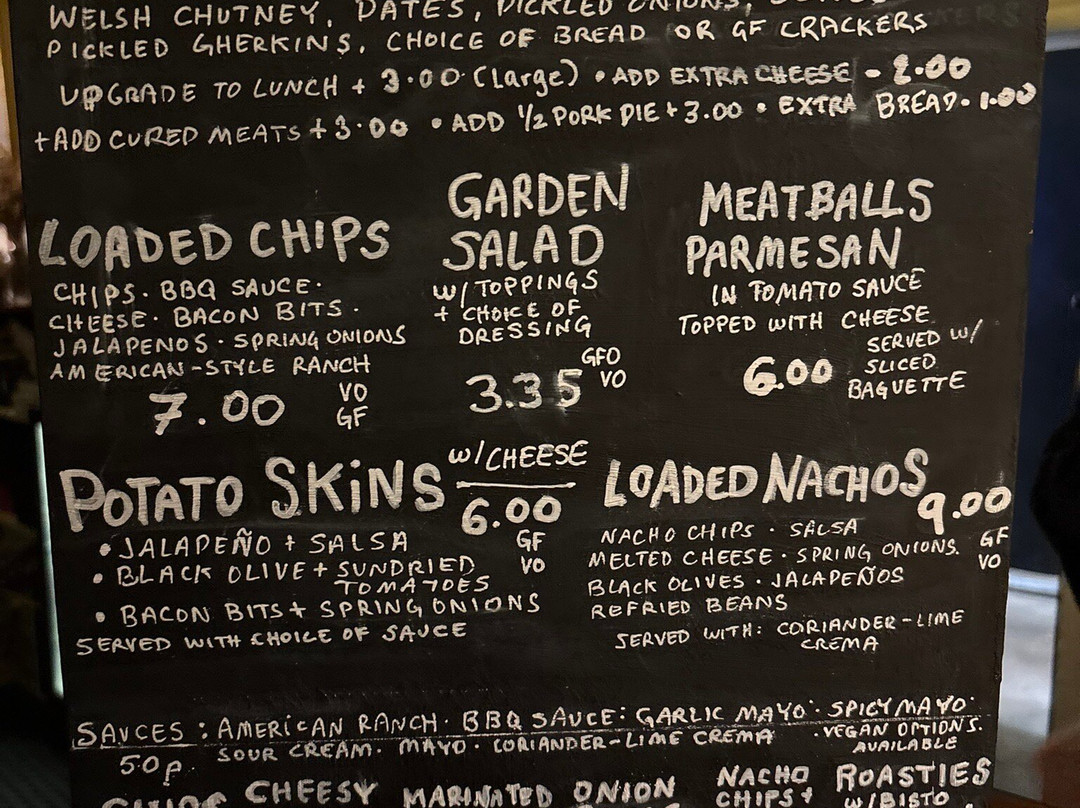 WELSH CHUTNEY, DATES, PICKLED ONIONS,
PICKLED GHERKINS, CHOICE OF BREAD OR GF CRACKERS
UPGRADE TO LUNCH + 3.00 (Large) • ADD EXTRA CHEESE - 2.00
+ADD CURED MEATS + 3.00 • ADD 1/2 PORK PIE + 3.00 • EXTRA BREAD - 1.00
LOADED CHIPS
CHIPS · BBQ SAUCE ·
CHEESE · BACON BITS ·
JALAPENOS · SPRING ONIONS
AMERICAN-STYLE RANCH
7.00
VO
GF
GARDEN
SALAD
W/ TOPPINGS
+ CHOICE OF
DRESSING
GFO
VO
3.35
MEATBALLS
PARMESAN
IN TOMATO SAUCE
TOPPED WITH CHEESE
SERVED W/
SLICED
BAGUETTE
6.00
POTATO SKINS
W/CHEESE
6.00
GF
VO
• JALAPEÑO + SALSA
• BLACK OLIVE + SUNDRIED
TOMATOES
• BACON BITS + SPRING ONIONS
SERVED WITH CHOICE OF SAUCE
LOADED NACHOS
9.00
GF
VO
NACHO CHIPS · SALSA
MELTED CHEESE · SPRING ONIONS.
BLACK OLIVES · JALAPEÑOS
REFRIED BEANS
SERVED WITH: CORIANDER-LIME
CREMA
SAUCES : AMERICAN RANCH · BBQ SAUCE : GARLIC MAYO · SPICY MAYO ·
50p
SOUR CREAM · MAYO · CORIANDER-LIME CREMA
· VEGAN OPTIONS.
AVAILABLE
CHEESY
MARINATED
ONION
NACHO
CHIPS +
ROASTIES
W/BISTO